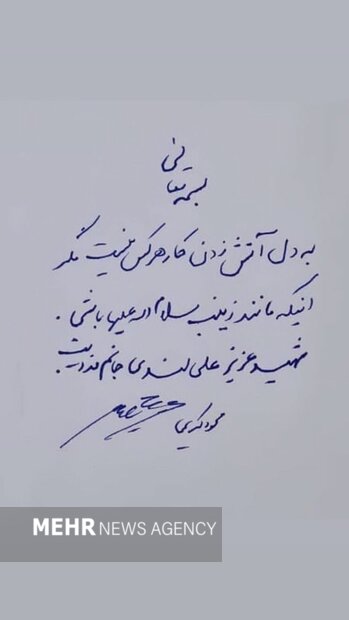 بسمه تعالی
به دل آتش زدن کار هرکس نیست مگر
اینکه مانند زینب سلام اله علیها باشی.
شهید عزیز علی لندی جانم فدایت.
محمود کریمی
MEHR NEWS AGENCY